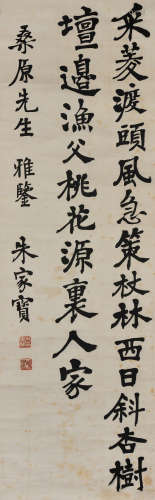 采菱渡頭風急策杖林西日斜杏樹
壇邊漁父桃花源裏人家
桑原先生 雅鑒 朱家寶